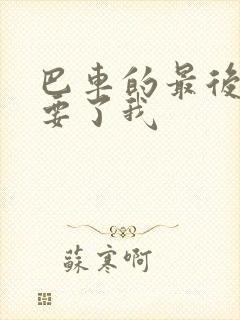 巴車的最後
要了我
蘇寒啊